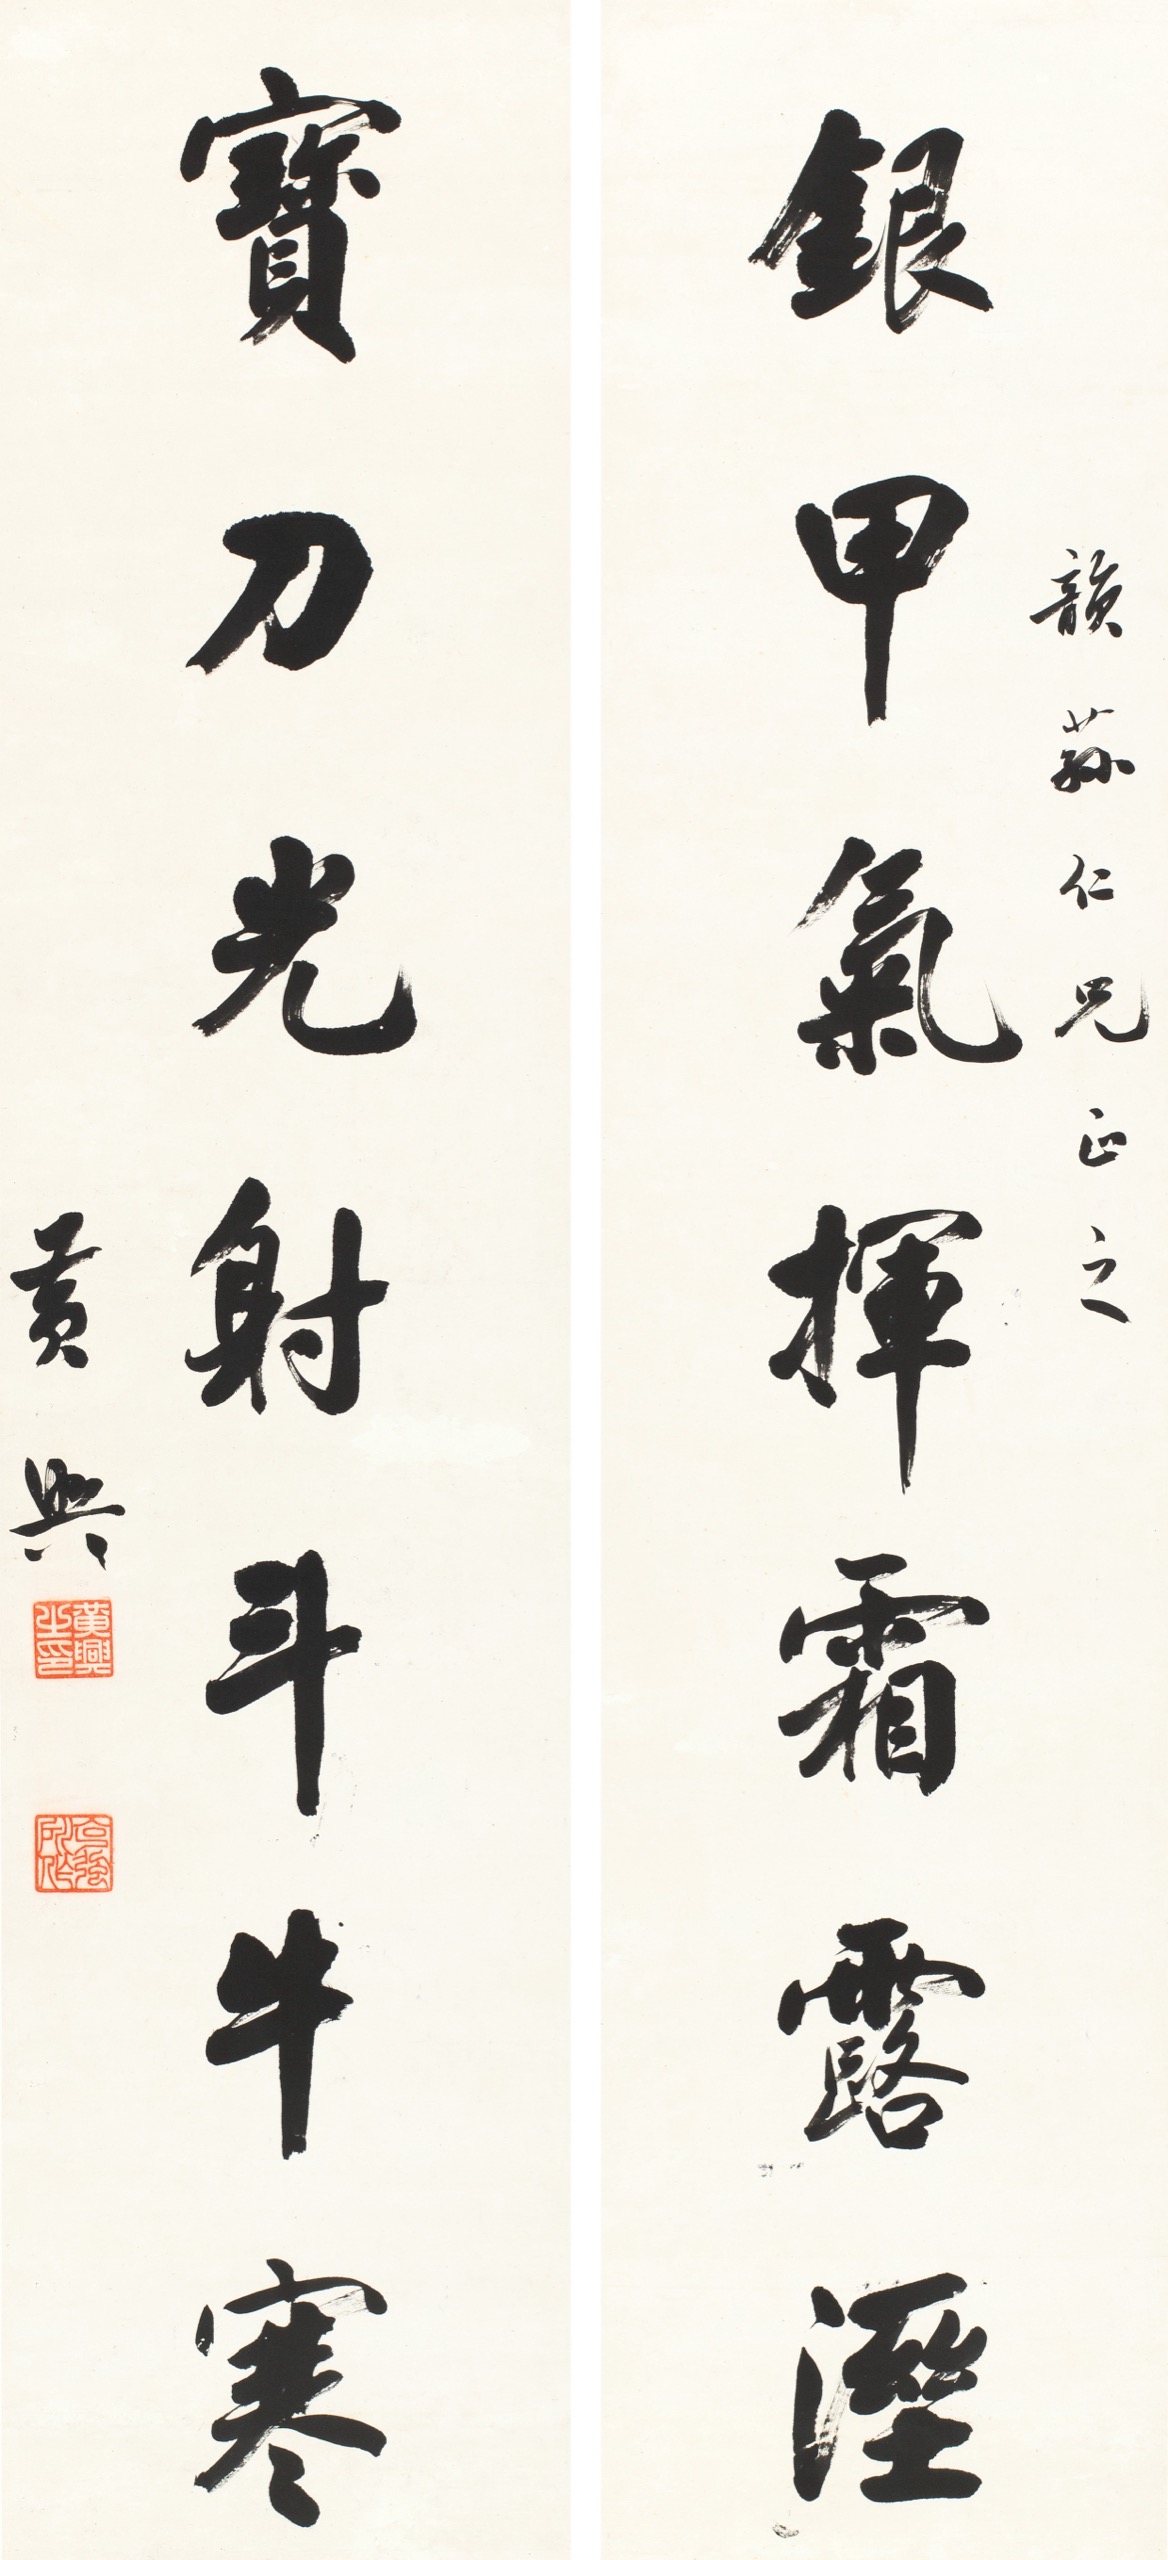 韻蓀仁兄正之
銀甲氣揮霜露溼
寶刀光射斗牛寒
黃興
黃興之印